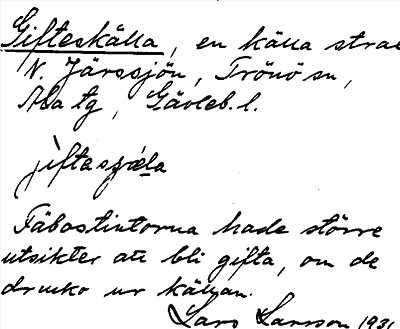 Gifteskälla, en källa strax
N. Järssjön, Trönö sn,
Ala tg, Gävleb. l.
jiftasɟæ̀la
Fäbostintorna hade större
utsikter att bli gifta, om de
drucko ur källan.
Lars Larsson 1931